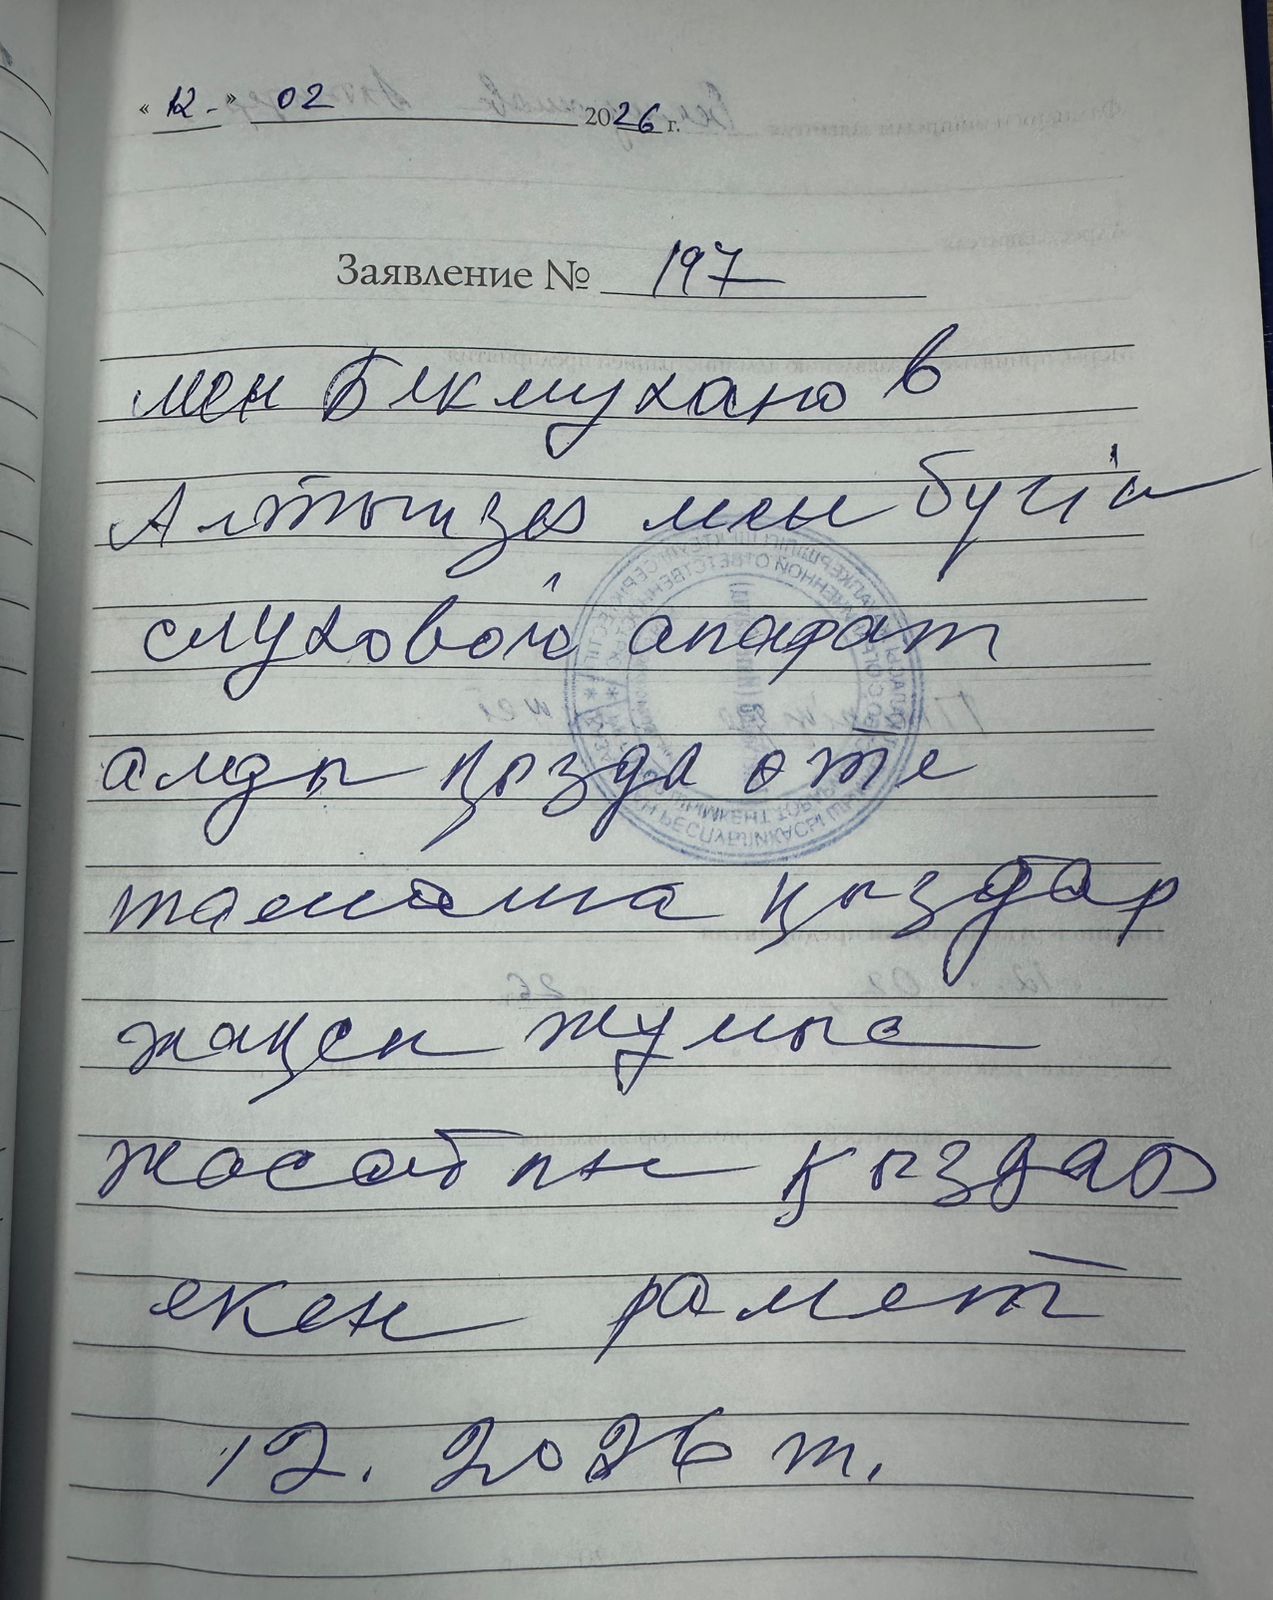 « 12. » 02 2026 г.
Заявление № 197
мен Бекмуханов
мен бугін
слуховой апарат
алды қызда өте
тамаша қыздар
жақсы жұмыс
жасайтын қыздар
екен рамет
12. 2026 т.